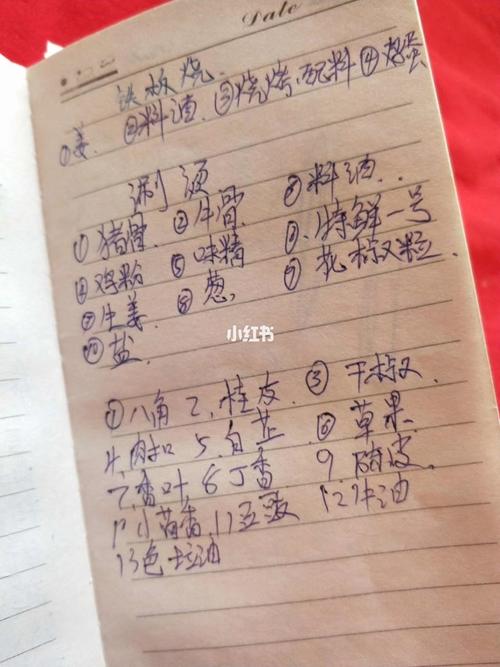 Date
铁板烧.
①姜. ②料酒. ③烧烤配料 ④鸡蛋
涮烫
①猪骨. ②牛骨. ③料酒..
④鸡粉 ⑤味精 ⑥.特鲜一号
⑦生姜. ⑧葱, ⑨.
⑩盐.
小红书
①八角 2.桂皮. ③干椒.
4.肉扣 5.白芷 ⑥草果
7.香叶, 6丁香 9.陈皮.
10小茴香. 11豆蔻 12.牛油
13色拉油